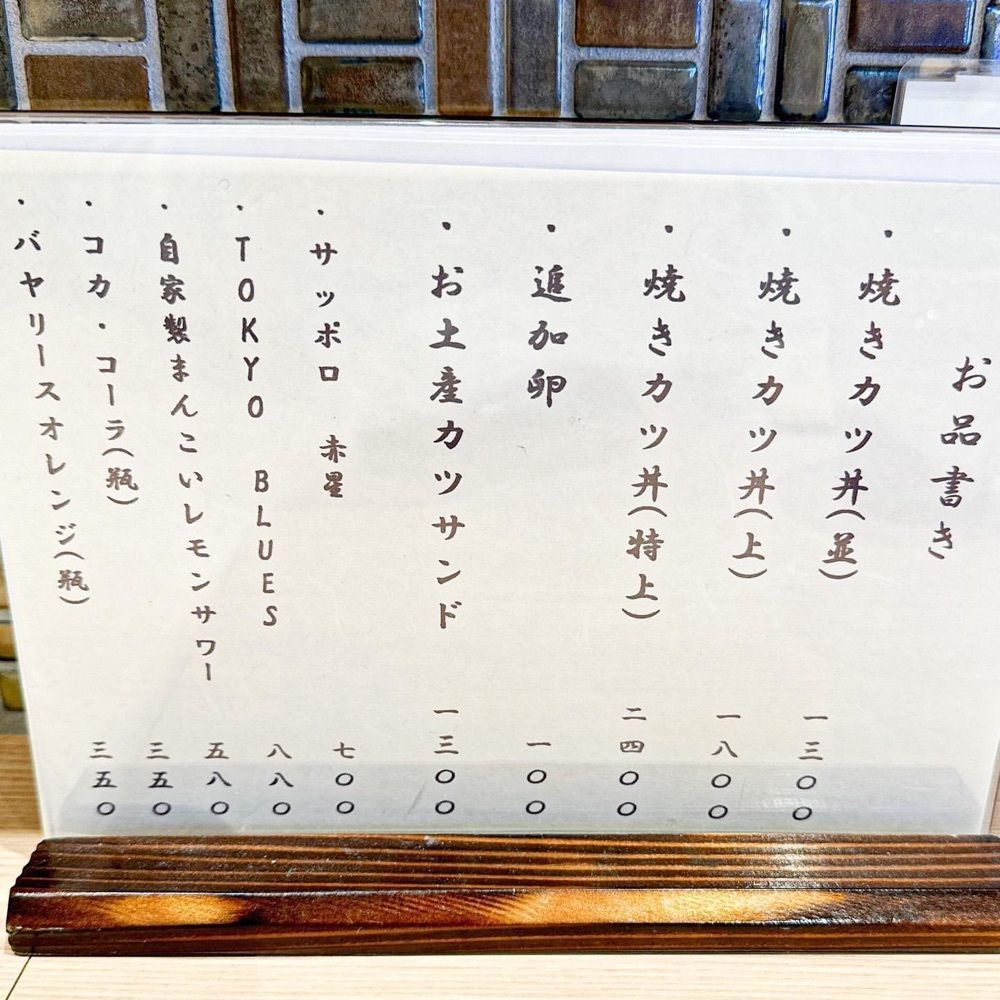 お品書き
・焼きカツ丼(並) 一三〇〇
・焼きカツ丼(上) 一八〇〇
・焼きカツ丼(特上) 二四〇〇
・追加卵 一〇〇
・お土産カツサンド 一三〇〇
・サッポロ 赤星 七〇〇
・TOKYO BLUES 八八〇
・自家製まんこいレモンサワー 五八〇
・コカ・コーラ(瓶) 三五〇
・バヤリースオレンジ(瓶) 三五〇